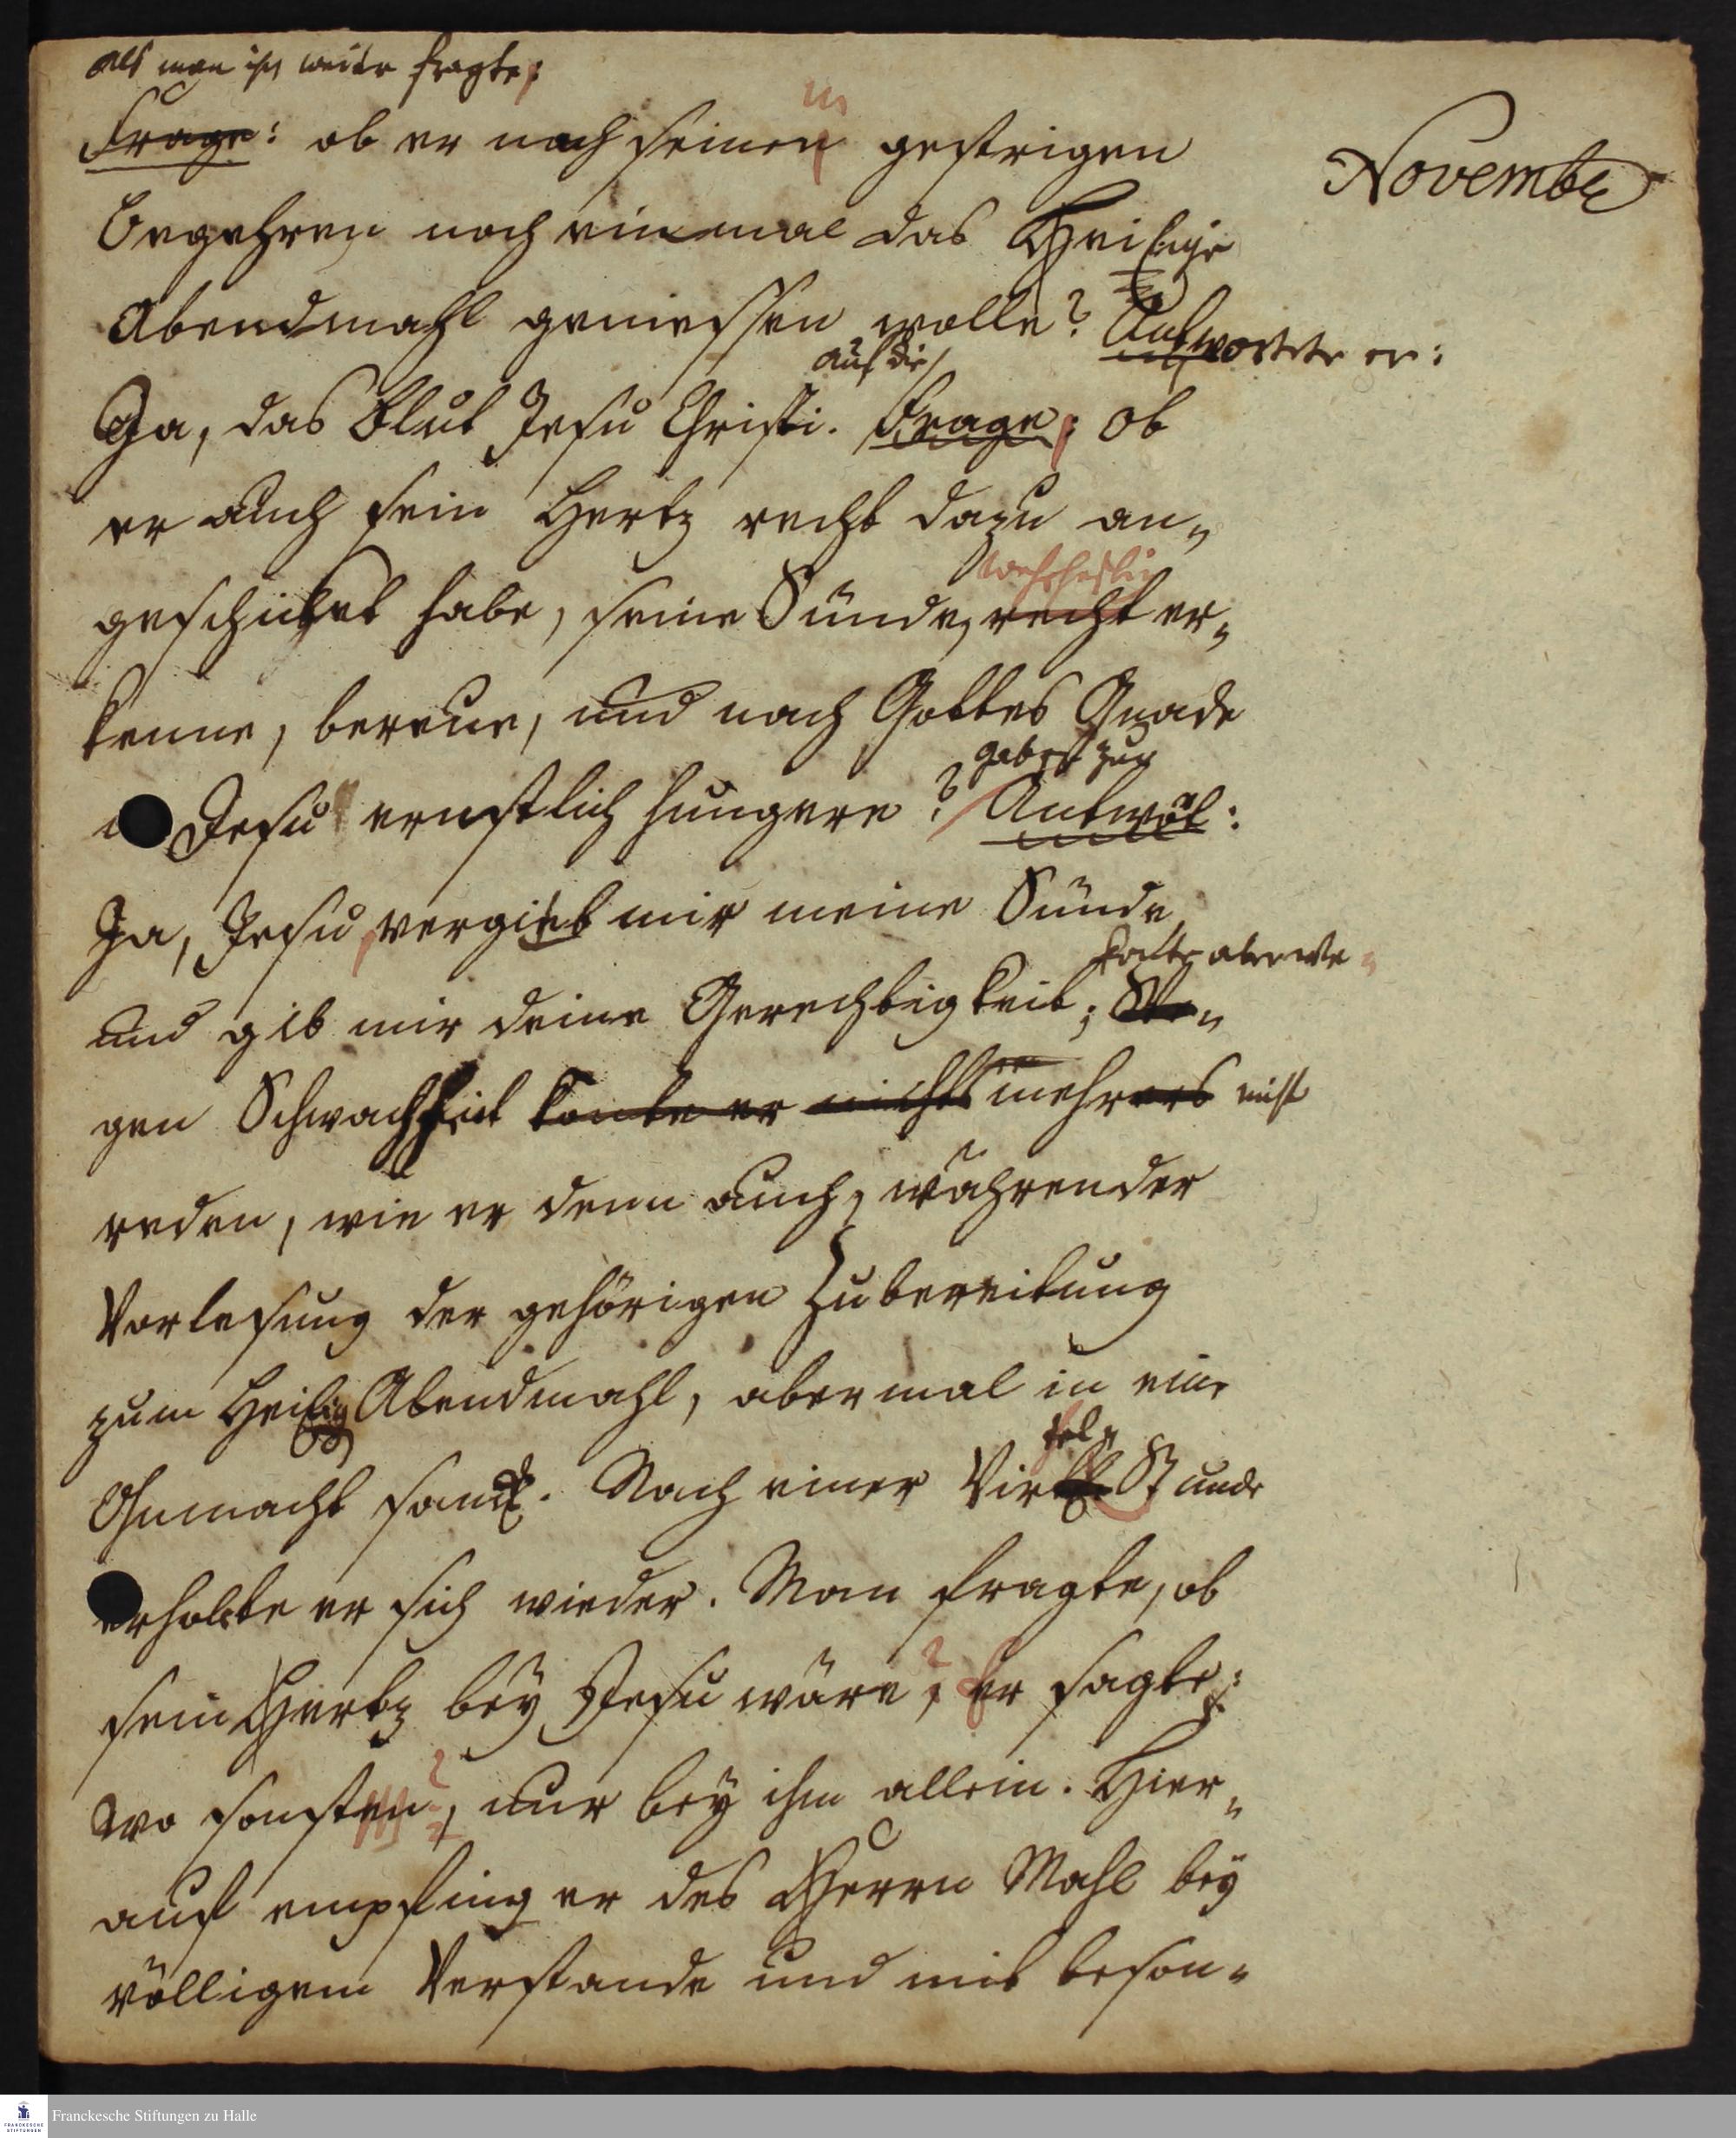 als man ihn weiter fragte;
Frage: ob er nach seinem gestrigen
November
Begehren noch einmal das Heilige
Abendmahl geniessen wolle? Antwortete er:
auf die
Ja, das Blut Jesu Christi. Frage; Ob
er auch sein Hertz recht dazu an„
wahrhaftig
geschicket habe, seine Sünde, recht er„
kenne, bereue, und nach Gottes Gnade
gab er zur
in Jesu ernstlich hungere? Antwort:
Ja, Jesu, vergieb mir meine Sünde
konte aber we„
und gib mir deine Gerechtigkeit; We„
gen Schwachheit konte er nichts mehrers nicht
reden, wie er denn auch, währender
Vorlesung der gehörigen Zubereitung
zum Heilig Abendmahl, abermal in eine
tel„
Ohnmacht sanck. Nach einer Viertel Stunde
erholete er sich wieder. Man fragte, ob
sein Hertz bey Jesu wäre? Er sagte:
wo sonsten?, nur bey ihm allein. Hier„
auf empfing er des Herrn Mahl bey
völligem Verstande und mit beson„
Franckesche Stiftungen zu Halle